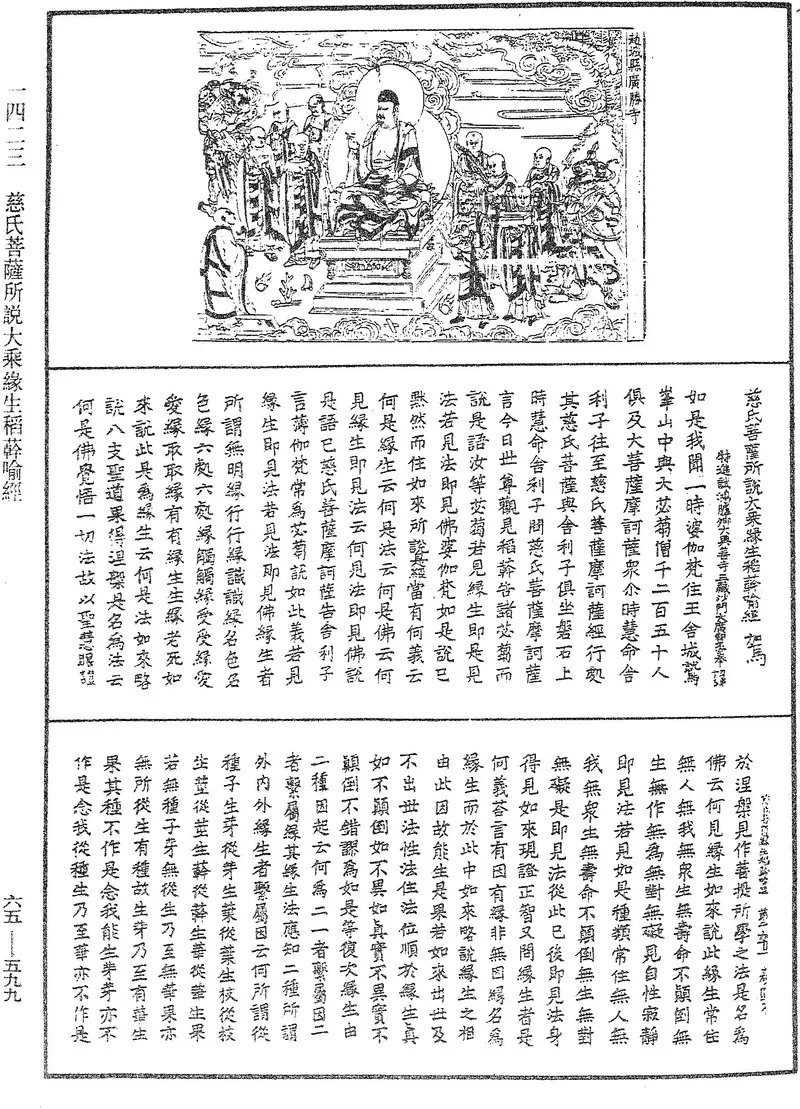 趙城縣廣勝寺
一四二三 慈氏菩薩所説大乘緣生稻𦼮喻經
慈氏菩薩所說大乘緣生稻𦼮喻經
特進試鴻臚卿大興善寺三藏沙門大廣智不空奉 詔譯
如是我聞一時婆伽梵住王舍城鷲
峯山中與大苾蒭僧千二百五十人
俱及大菩薩摩訶薩衆尒時慧命舍
利子往至慈氏菩薩摩訶薩經行處
其慈氏菩薩與舍利子俱坐磐石上
時慧命舍利子問慈氏菩薩摩訶薩
言今日世尊觀見稻𦼮告諸苾蒭而
說是語汝等苾蒭若見緣生即是見
法若見法即見佛婆伽梵如是說已
默然而住如來所說是經當有何義云
何是緣生云何是法云何是佛云何
見緣生即見法云何見法即見佛說
是語已慈氏菩薩摩訶薩告舍利子
言薄伽梵常為苾蒭說如此義若見
緣生即見法若見法即見佛緣生者
所謂無明緣行行緣識識緣名色名
色緣六處六處緣觸觸緣受受緣愛
愛緣取取緣有有緣生生緣老死如
來說此是為緣生云何是法如來略
說八支聖道果得涅槃是名為法云
何是佛覺悟一切法故以聖慧眼證
於涅槃見作菩提所學之法是名為
佛云何見緣生如來說此緣生常住
無人無我無衆生無壽命不顛倒無
生無作無為無對無礙見自性寂靜
即見法若見如是種類常住無人無
我無衆生無壽命不顛倒無生無對
無礙是即見法從此已後即見法身
得見如來現證正智又問緣生者是
何義荅言有因有緣非無因緣名為
緣生而於此中如來略說緣生之相
由此因故能生是果若如來出世及
不出世法性法住法位順於緣生真
如不顛倒如不異如真實不異實不
顛倒不錯謬為如是等復次緣生由
二種因起云何為二一者繫屬因二
者繫屬緣其緣生法應知二種所謂
外內外緣生者繫屬因云何所謂從
種子生芽從芽生葉從葉生枝從枝
生莖從莖生𦼮從𦼮生華從華生果
若無種子芽無從生乃至無華果亦
無所從生有種故生芽乃至有華生
果其種不作是念我能生芽芽亦不
作是念我從種生乃至華亦不作是
六五—五九九